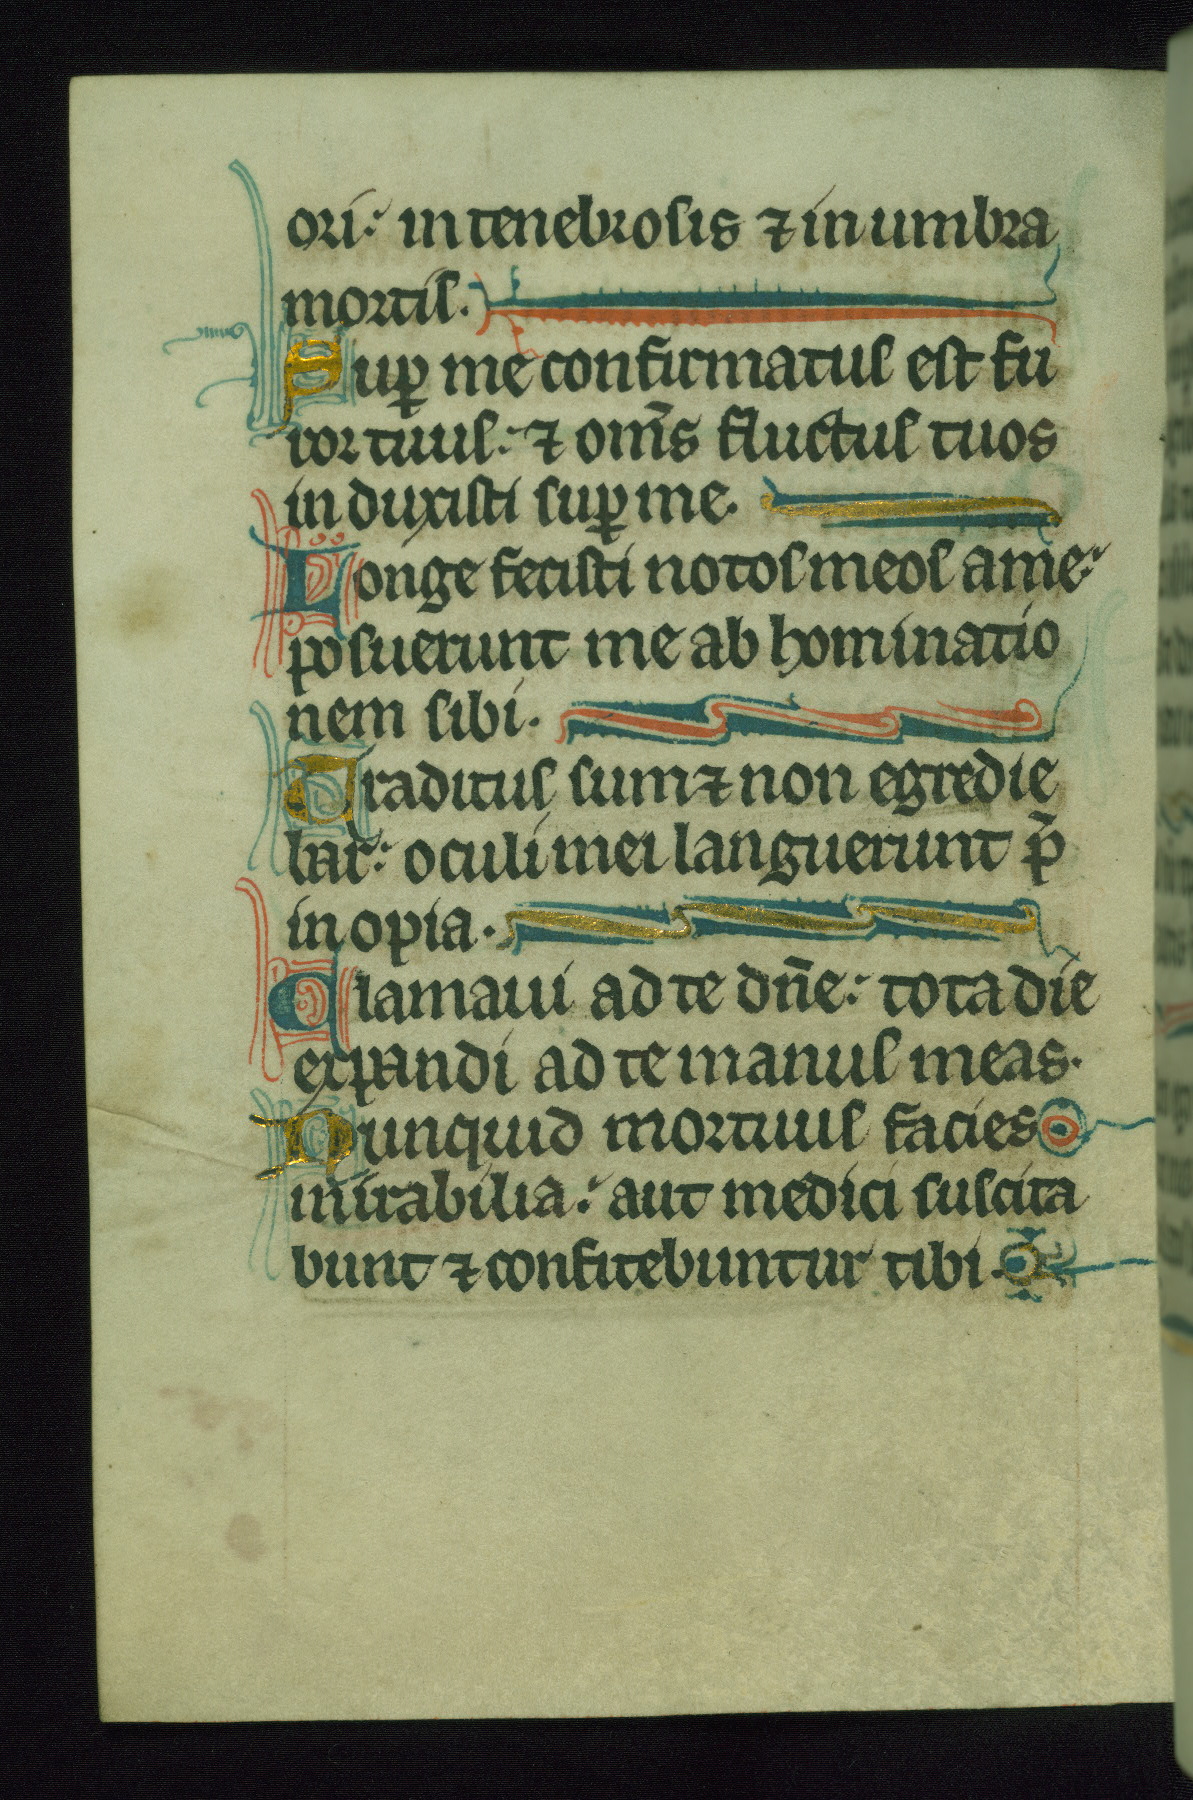 ori: in tenebrosis ⁊ in umbra
mortis.
Sup̱ me confirmatus est fu
ror tuus: ⁊ om̄s fluctus tuos
induxisti sup̱ me.
Longe fecisti notos meos a me:
posuerunt me abhominatio
nem sibi.
Traditus sum ⁊ non egredie
bar: oculi mei languerunt p̄
inopia.
Clamaui ad te dn̄e: tota die
expandi ad te manus meas.
Nunquid mortuis facies
mirabilia: aut medici suscita
bunt ⁊ confitebuntur tibi.